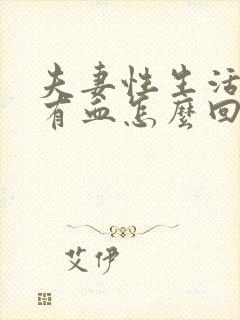 夫妻性生活
有血怎麼回
艾伊